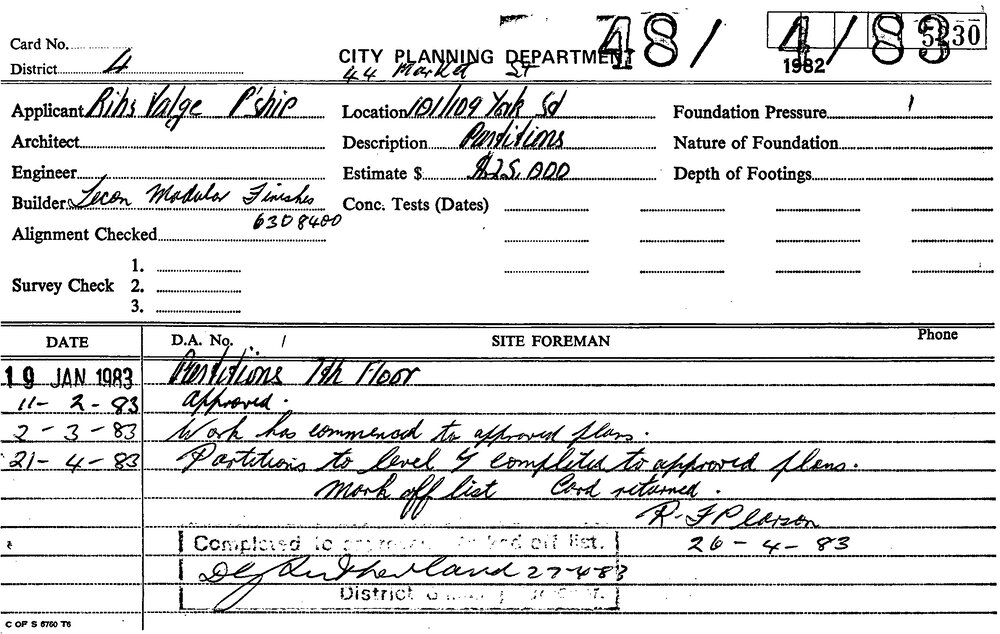 48/ 4/83
5230
1982
Card No.
District 4
CITY PLANNING DEPARTMENT
44 Market St
Applicant Rihs Valge P'ship
Location 101/109 York Sd
Foundation Pressure
Architect
Description Partitions
Nature of Foundation
Engineer
Estimate $ $25,000
Depth of Footings
Builder Lecon Modular Finishes
6308400
Conc. Tests (Dates)
Alignment Checked
Survey Check
1.
2.
3.
DATE D.A. No. / SITE FOREMAN Phone
19 JAN 1983 Partitions 7th Floor
11-2-83 approved.
2-3-83 Work has commenced to approved plans.
21-4-83 Partitions to level 7 completed to approved plans.
Mark off list Card returned.
R.F Pearson
26-4-83
Completed to off list.
Rutherland 27-4-83
District
C OF S 6760 T6